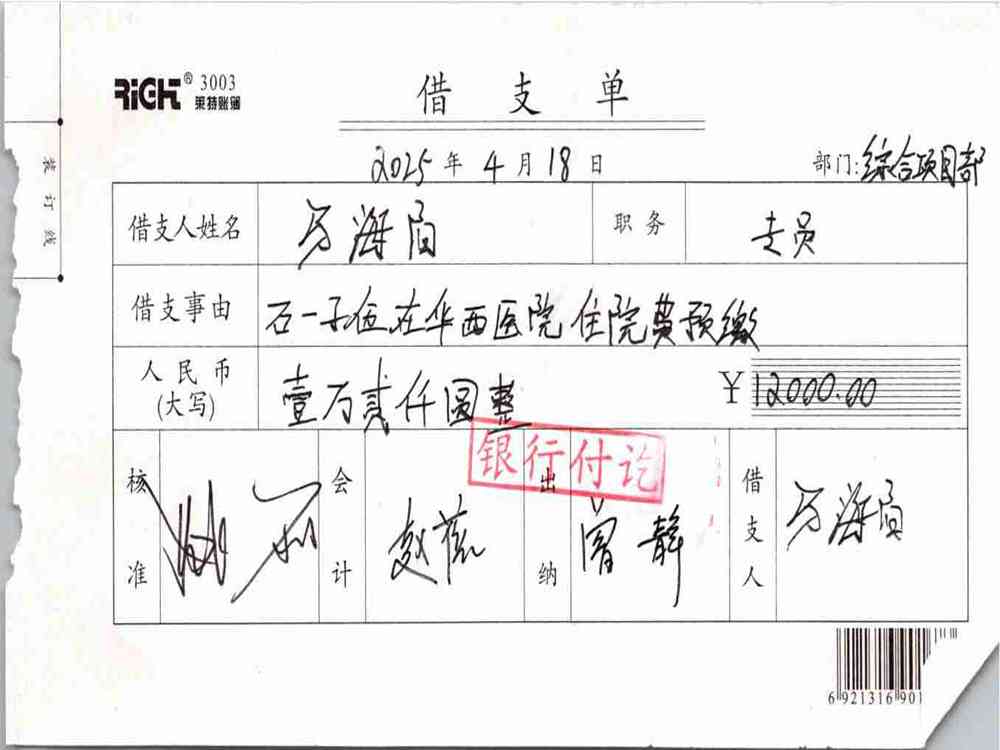 RiGHT® 3003
莱特账簿
借支单
2025年4月18日 部门:综合项目部
装订线
借支人姓名 万海 职务 专员
借支事由 石一子伍在华西医院住院费预缴
人民币(大写) 壹万贰仟圆整 ¥12000.00
银行付讫
核准 会计 赵蓓 出纳 曾静 借支人 万海
6 921316 901